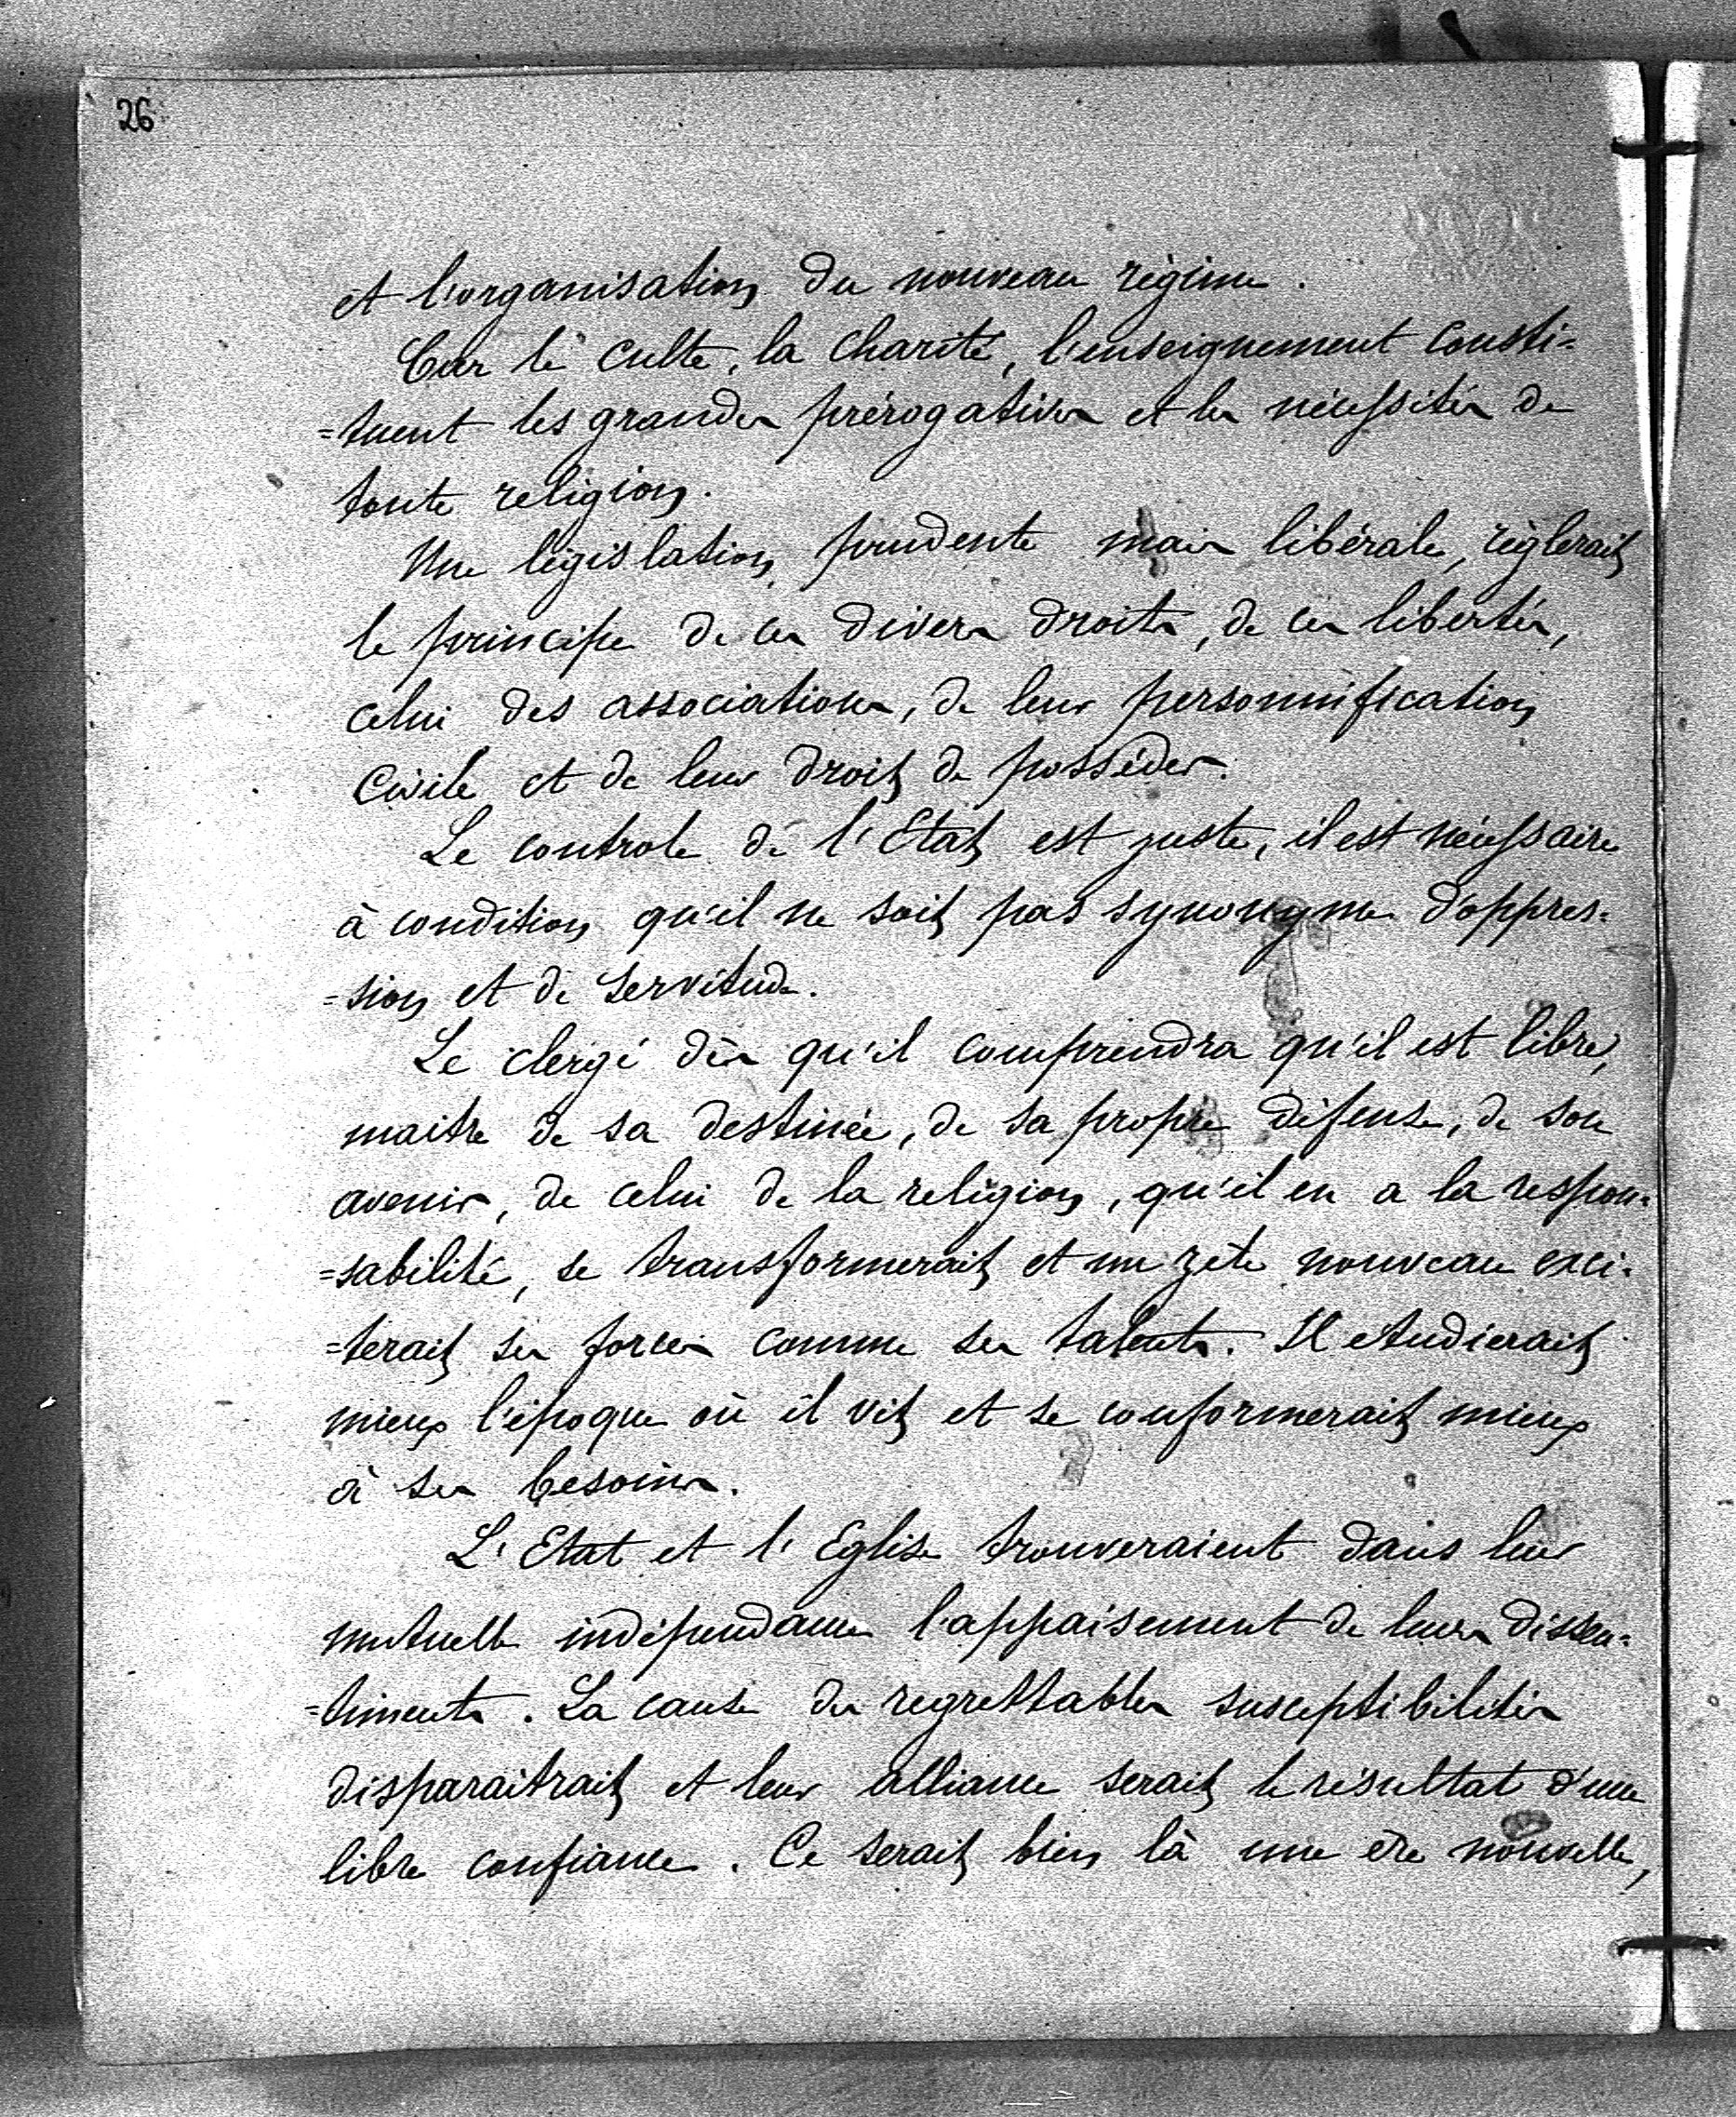 26
et l'organisation du nouveau régime.
Car le culte, la charité, l'enseignement consti=
=tuent les grandes prérogatives et les nécessités de
toute religion.
Une législation, prudente mais libérale, règlerait
le principe de ces divers droits, de ces libertés,
celui des associations, de leur personnification
civile et de leur droit de posséder.
Le controle de l'Etat est juste, il est nécessaire
à condition qu'il ne soit pas synonyme d'oppres=
=sion et de servitude.
Le clergé dès qu'il comprendra qu'il est libre,
maitre de sa destinée, de sa propre défense, de son
avenir, de celui de la religion, qu'il en a la respon=
=sabilité, se transformerait et un zèle nouveau exci=
=terait ses forces comme ses talents. Il etudierait
mieux l'époque où il vit et se conformerait mieux
à ses besoins.
L'Etat et l'Eglise trouveraient dans leur
mutuelle indépendance l'appaisement de leurs dissen=
=timents. La cause de regrettables susceptibilités
disparaitrait et leur alliance serait le résultat d'une
libre confiance. Ce serait bien là une ère nouvelle,